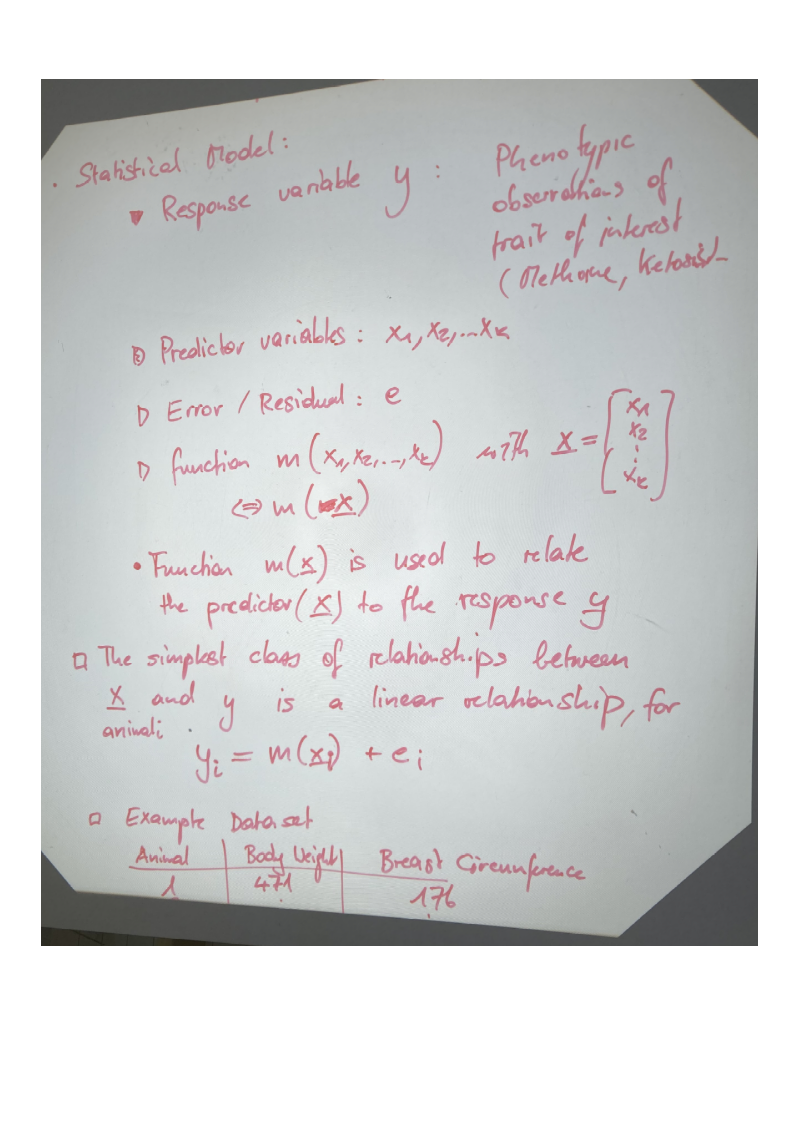 • Statistical Model:
▼ Response variable y : Phenotypic
observations of
trait of interest
(Methane, Ketosis
▷ Predictor variables: x1, x2, ... xk
▷ Error / Residual: e
▷ function m(x1, x2, ..., xk) with x = [x1 x2 ⋮ xk]
⇔ m(x)
• Function m(x) is used to relate
the predictor(x) to the response y
□ The simplest class of relationships between
x and y is a linear relationship, for
animal i .
yi = m(xi) + ei
□ Example Dataset
Animal | Body Weight | Breast Circumference
1 | 471 | 176